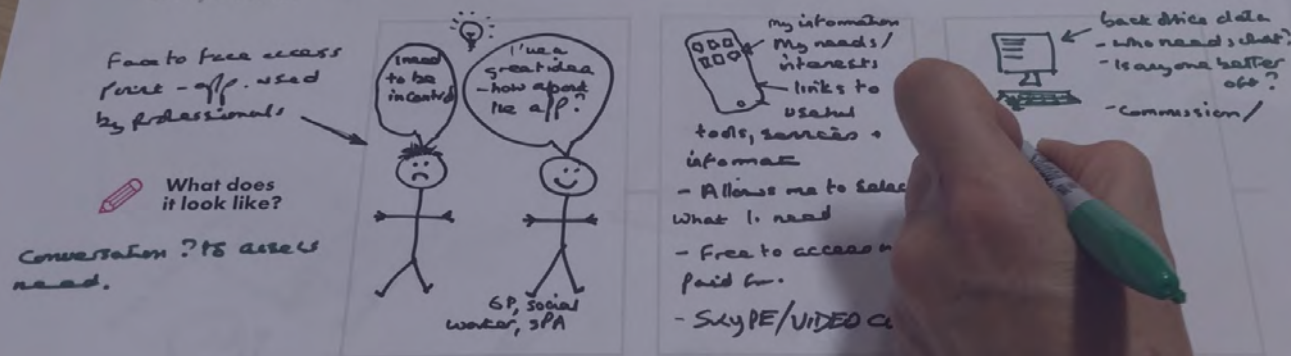 Face to face access
Point - app. used
by professionals
What does
it look like?
Conversation ? to assess
need.
I need
to be
in control
I've a
great idea
- how about
the app?
GP, social
worker, SPA
my information
My needs/
interests
links to
useful
tools, services +
informat
- Allows me to selec
what I need
- Free to access
Paid for.
- SKYPE/VIDEO
back office data
- who needs what?
- Is anyone better
off?
- Commission/